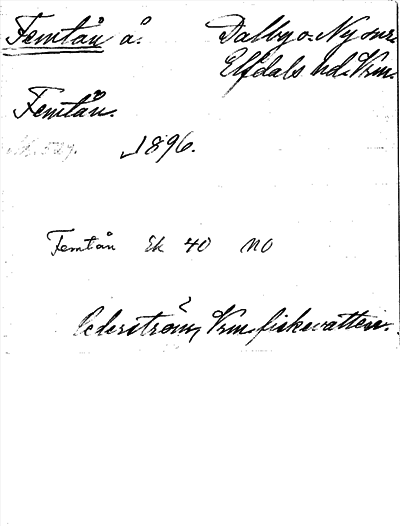 Femtån å. Dalby o. Ny snr.
Elfdals hd. Vrm.
Femtån.
1896.
Femtån Ek 40 NO
Cederström, Vrm. fiskevatten.